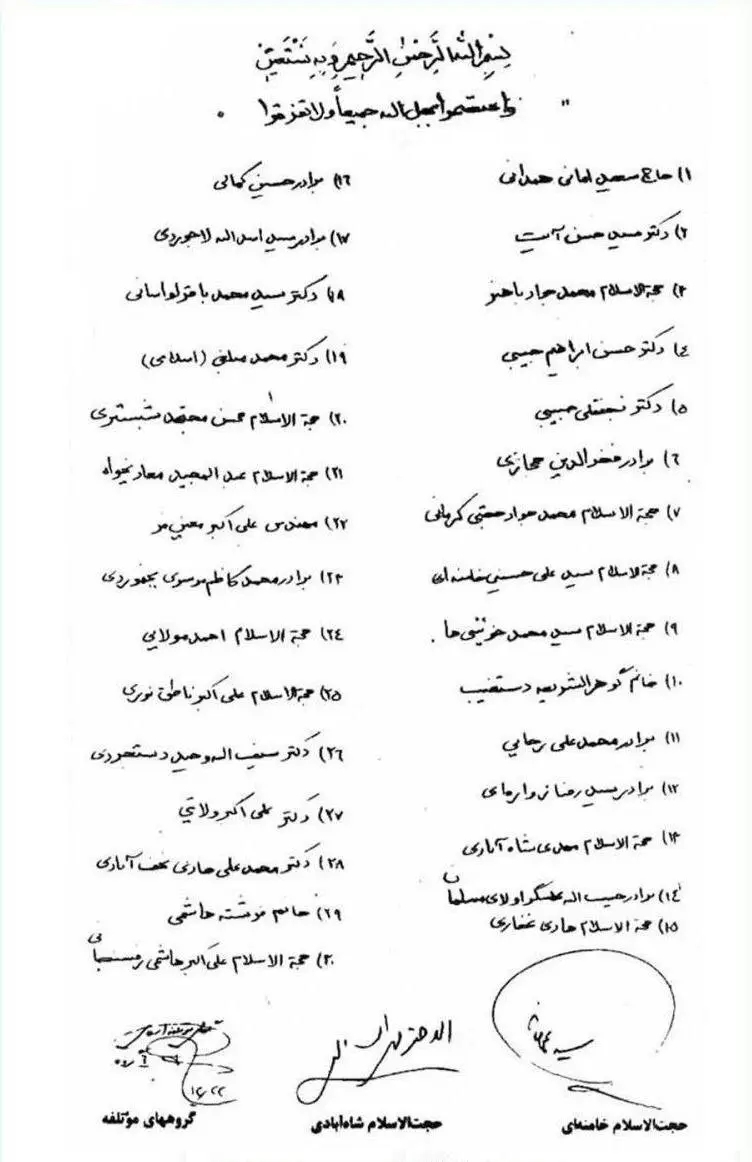 بسم الله الرحمن الرحیم و به نستعین
" واعتصموا بحبل الله جمیعاً ولا تفرقوا "
۱) حاج سعید امانی همدانی
۲) دکتر سید حسن آیت
۳) حجة الاسلام محمد جواد باهنر
۴) دکتر حسن ابراهیم حبیبی
۵) دکتر نجفقلی حبیبی
۶) برادر فخرالدین حجازی
۷) حجة الاسلام محمد جواد حجتی کرمانی
۸) حجة الاسلام سید علی حسینی خامنه ای
۹) حجة الاسلام سید محمد خوئینی ها
۱۰) خانم گوهرالشریعه دستغیب
۱۱) برادر محمد علی رجایی
۱۲) برادر سید رضا زواره ای
۱۳) حجة الاسلام مهدی شاه آبادی
۱۴) برادر حبیب اله عسگراولادی مسلمان
۱۵) حجة الاسلام هادی غفاری
۱۶) برادر حسین کمالی
۱۷) برادر سید اسداله لاجوردی
۱۸) دکتر سید محمد باقر لواسانی
۱۹) دکتر محمد مبلغی (اسلامی)
۲۰) حجة الاسلام محسن مجتهد شبستری
۲۱) حجة الاسلام عبدالمجید معادیخواه
۲۲) مهندس علی اکبر معین فر
۲۳) برادر محمد کاظم موسوی بجنوردی
۲۴) حجة الاسلام احمد مولایی
۲۵) حجة الاسلام علی اکبر ناطق نوری
۲۶) دکتر سیف اله وحید دستجردی
۲۷) دکتر علی اکبر ولایتی
۲۸) دکتر محمد علی هادی نجف آبادی
۲۹) خانم فرشته هاشمی
۳۰) حجة الاسلام علی اکبر هاشمی رفسنجانی
حجت‌الاسلام خامنه‌ای
حجت‌الاسلام شاه‌آبادی
۱۲/۲۲
گروههای مؤتلفه